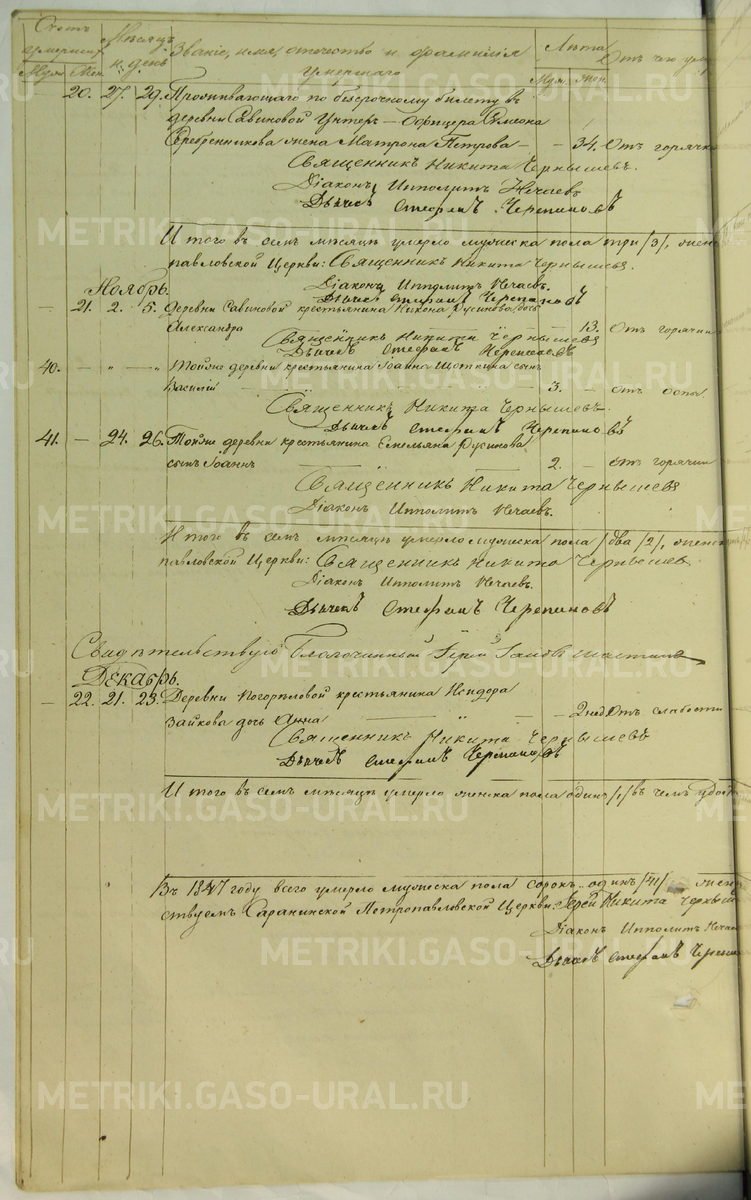 Счетъ умершихъ
Муж. Жен.
Мѣсяцъ и день
Званіе, имя, отечество и фамилія умершаго
Лѣта
Муж. Жен.
Отъ чего
20. 27. 29. Проживающаго по безсрочному билету въ
деревни Савиновой Унтеръ-Офицера Симеона
Серебренникова жена Матрона Петрова — 34. Отъ горячк
Священникъ Никита Чернышевъ.
Діаконъ Ипполитъ Нечаевъ
Дьячекъ Стефанъ Черепановъ
Итого въ семъ мѣсяцѣ умерло мужеска пола три /3/, женс
павловской Церкви: Священникъ Никита Чернышевъ.
Діаконъ Ипполитъ Нечаевъ.
Дьячекъ Стефанъ Черепановъ
Ноябрь.
— 21. 2. 5. Деревни Савиновой крестьянина Никона Русинова дочь
Александра — 13. Отъ горячки
Священникъ Никита Чернышевъ
Дьячекъ Стефанъ Черепановъ
40. — " — " Тойже деревни крестьянина Іоанна Щоткина сынъ
Василій — 3. — отъ оспы
Священникъ Никита Чернышевъ.
Дьячекъ Стефанъ Черепановъ
41. — 24. 26. Тойже деревни крестьянина Емельяна Русинова
сынъ Іоаннъ — 2. — отъ горячки
Священникъ Никита Чернышевъ
Діаконъ Ипполитъ Нечаевъ.
Итого въ семъ мѣсяцѣ умерло мужеска пола два /2/, женск
павловской Церкви: Священникъ Никита Чернышевъ
Діаконъ Ипполитъ Нечаевъ.
Дьячекъ Стефанъ Черепановъ
Свидѣтельствую Благочинный Іерей
Декабрь.
— 22. 21. 23. Деревни Погорѣловой крестьянина Исидора
Зайкова дочь Анна — " — 2 нед. Отъ слабости
Священникъ Никита Чернышевъ
Дьячекъ Стефанъ Черепановъ
Итого въ семъ мѣсяцѣ умерло женска пола одинъ /1/ въ чемъ удост
Въ 1847 году всего умерло мужеска пола сорокъ одинъ /41/ женс
ствуемъ Саранинской Петропавловской Церкви: Іерей Никита Черныш
Діаконъ Ипполитъ Нечае
Дьячекъ Стефанъ Черепан
METRIKI.GASO-URAL.RU